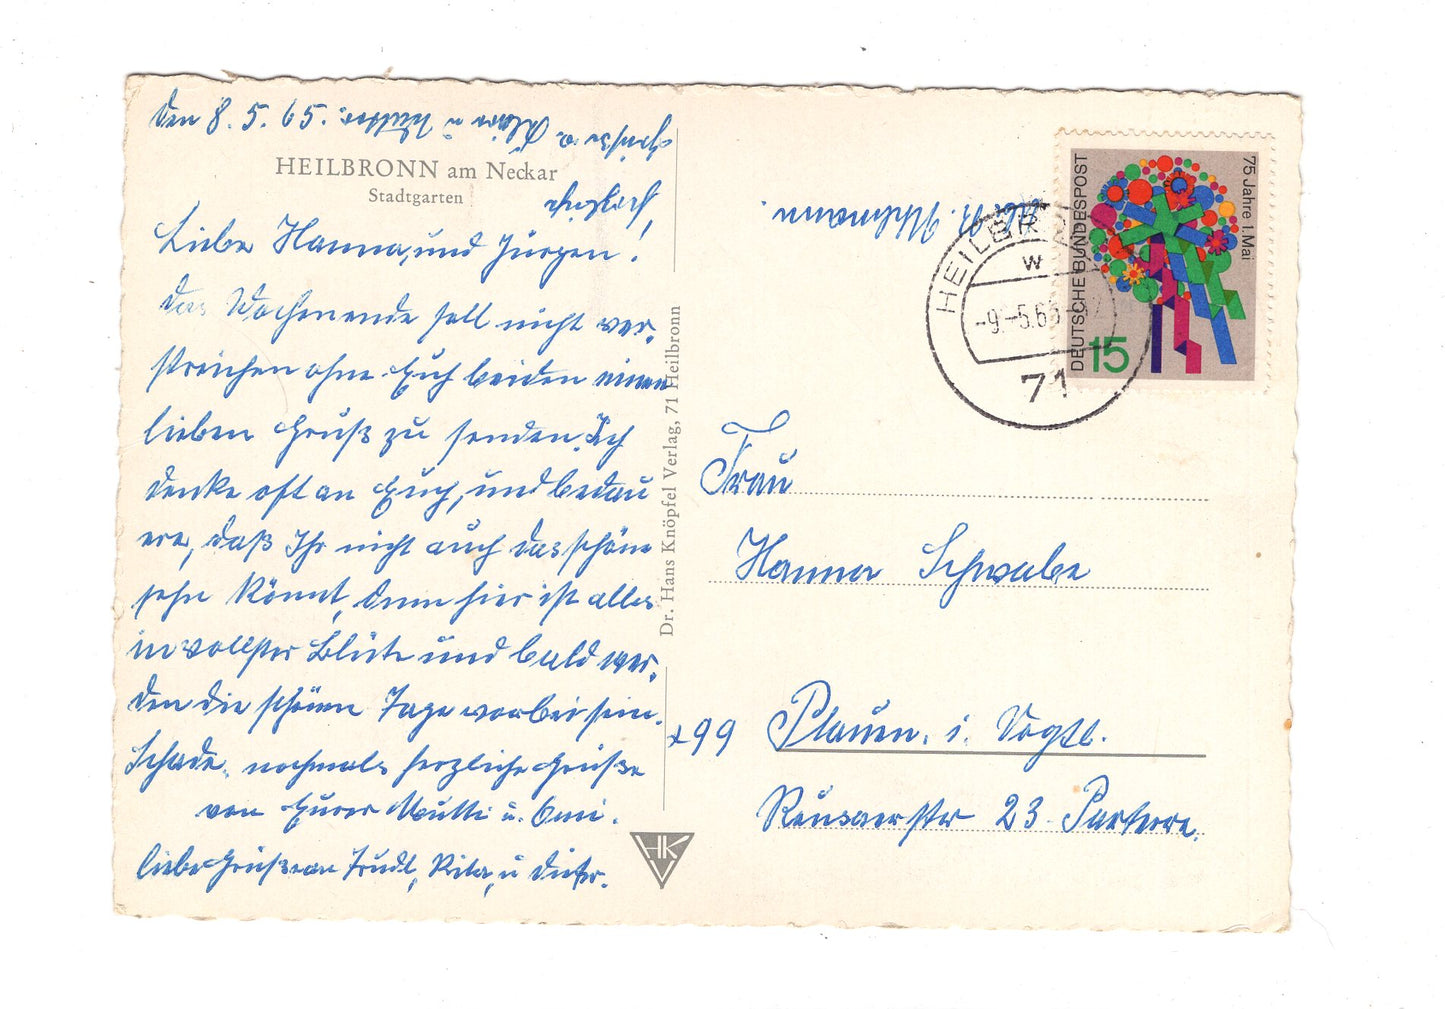 Den 8. 5. 65.
HEILBRONN am Neckar
Stadtgarten
Liebe Hanna, und Jürgen!
Das Wochenende soll nicht ver-
streichen ohne Euch beiden einen
lieben Gruß zu senden. Ich
denke oft an Euch, und bedau
ere, daß Ihr nicht auch das schöne
sehn könnt, denn hier ist alles
in vollster Blüte und bald wer-
den die schönen Tage vorbei sein.
Schade. nochmals herzliche Grüße
von Eurer Mutti u. Omi.
liebe Grüße von Trudl, Rita, u Dieter.
Grüße a. u Walter
herzlich
Dr. Hans Knöpfel Verlag, 71 Heilbronn
HK
V
HEILBRONN
W
-9.-5.65-
71
DEUTSCHE BUNDESPOST
15
75 Jahre 1. Mai
Frau
Hanna Schwabe
x99 Plauen. i. Vogtl.
Reusaerstr 23 Parterre.